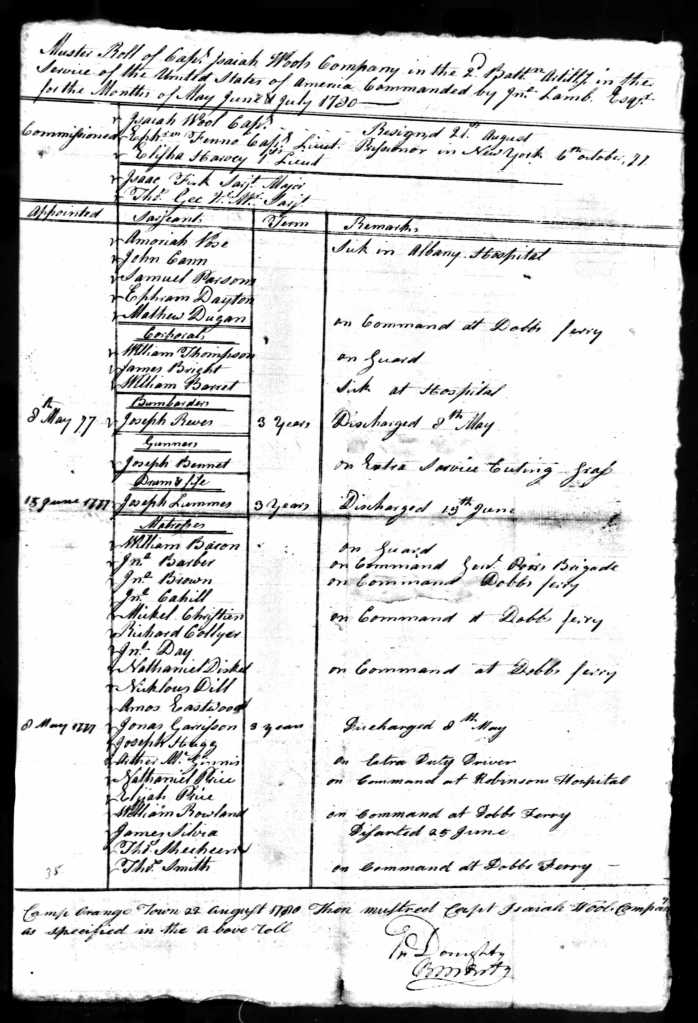 Muster Roll of Capt Isaiah Wools Company in the 2d Battn Artilly in the
Service of the United States of America Commanded by Jno Lamb Esqr
for the Months of May June & July 1780
Commissioned
Isaiah Wool Capt Resignd 21st August
Ephm Fenno Capt Lieut Prisonor in New York 6th october, 77
Elisha Harvey 1st Lieut
Isaac Sarjt Major
Thos Gee Sarjt
Appointed Sarjeants Term Remarks
Amoriah Sick in Albany Hospital
John Cann
Samuel Parsons
Ephram Dayton
Mathew Dugan on Command at Dobbs ferry
Corporals
William Thompson on Guard
James Bright
William Barret Sick at Hospital
Bumbarders
8th May 77 Joseph Reves 3 Years Discharged 8th May
Gunners
Joseph Bennet on Extra Service Cuting Gras
Drum & fife
15 June 1777 Joseph Lummes 3 Years Discharged 15th June
Matroses
William Bacon on Guard
Jno Barber on Command Genl Poors Brigade
Jno Brown on Command Dobbs ferry
Jno Cahill
Mickel Christien on Command at Dobbs ferry
Richard Collyer
Jno Day
Nathaniel Diskel on Command at Dobbs ferry
Nicklous Dill
Amos Eastwood
8 May 1777 Jonas Garrisson 3 years Discharged 8th May
Joseph Hagg
Mc Ginnis on Extra Duty Driver
Nathaniel Price on Command at Robinsons Hospital
Elijah Price
William Rowland on Command at Dobbs Ferry
James Silvia Disarted 25 June
Thos
Thos Smith on Command at Dobbs Ferry
35
Camp Orange Town 22 August 1780 Then mustred Capt Isaiah Wools Company
as specified in the above Roll
Jn Doughty